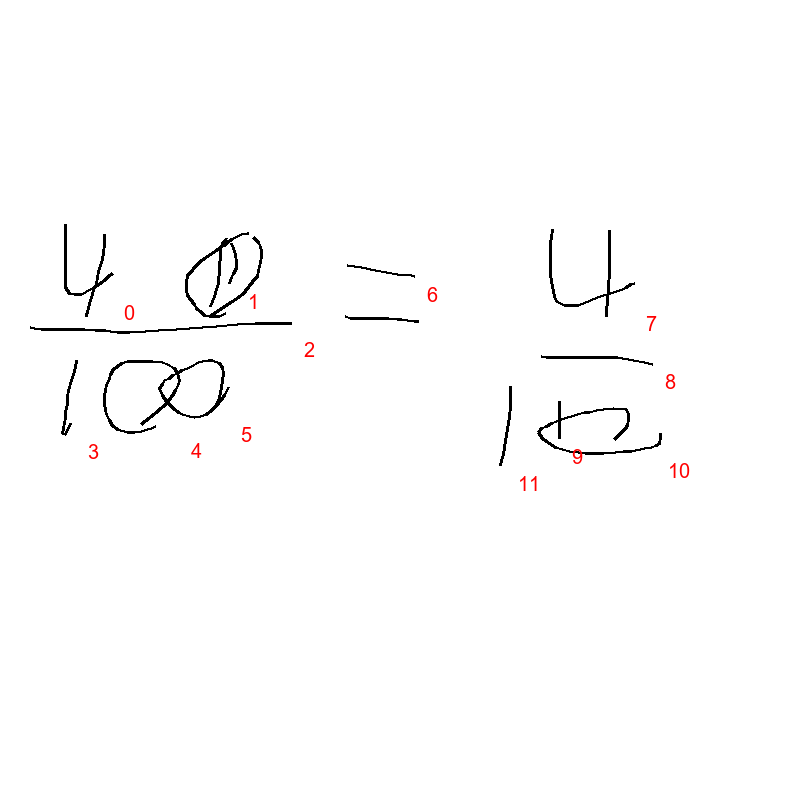 4 0 = 4
100 10
0 1 2 3 4 5 6 7 8 9 10 11